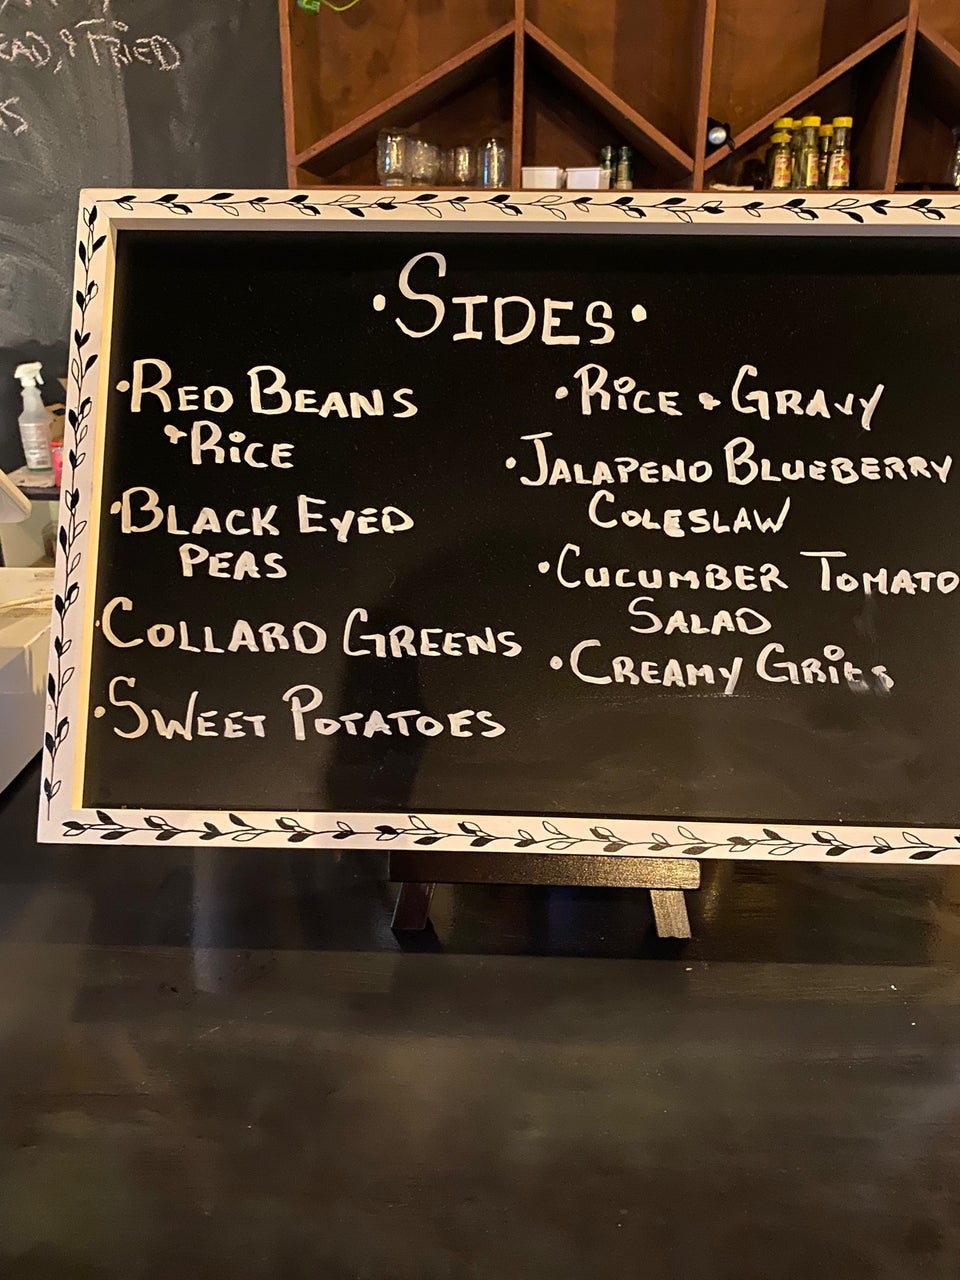 FRIED
·SIDES·
·RED BEANS
+RICE
·BLACK EYED
PEAS
·COLLARD GREENS
·SWEET POTATOES
·RICE + GRAVY
·JALAPENO BLUEBERRY
COLESLAW
·CUCUMBER TOMATO
SALAD
·CREAMY GRITS